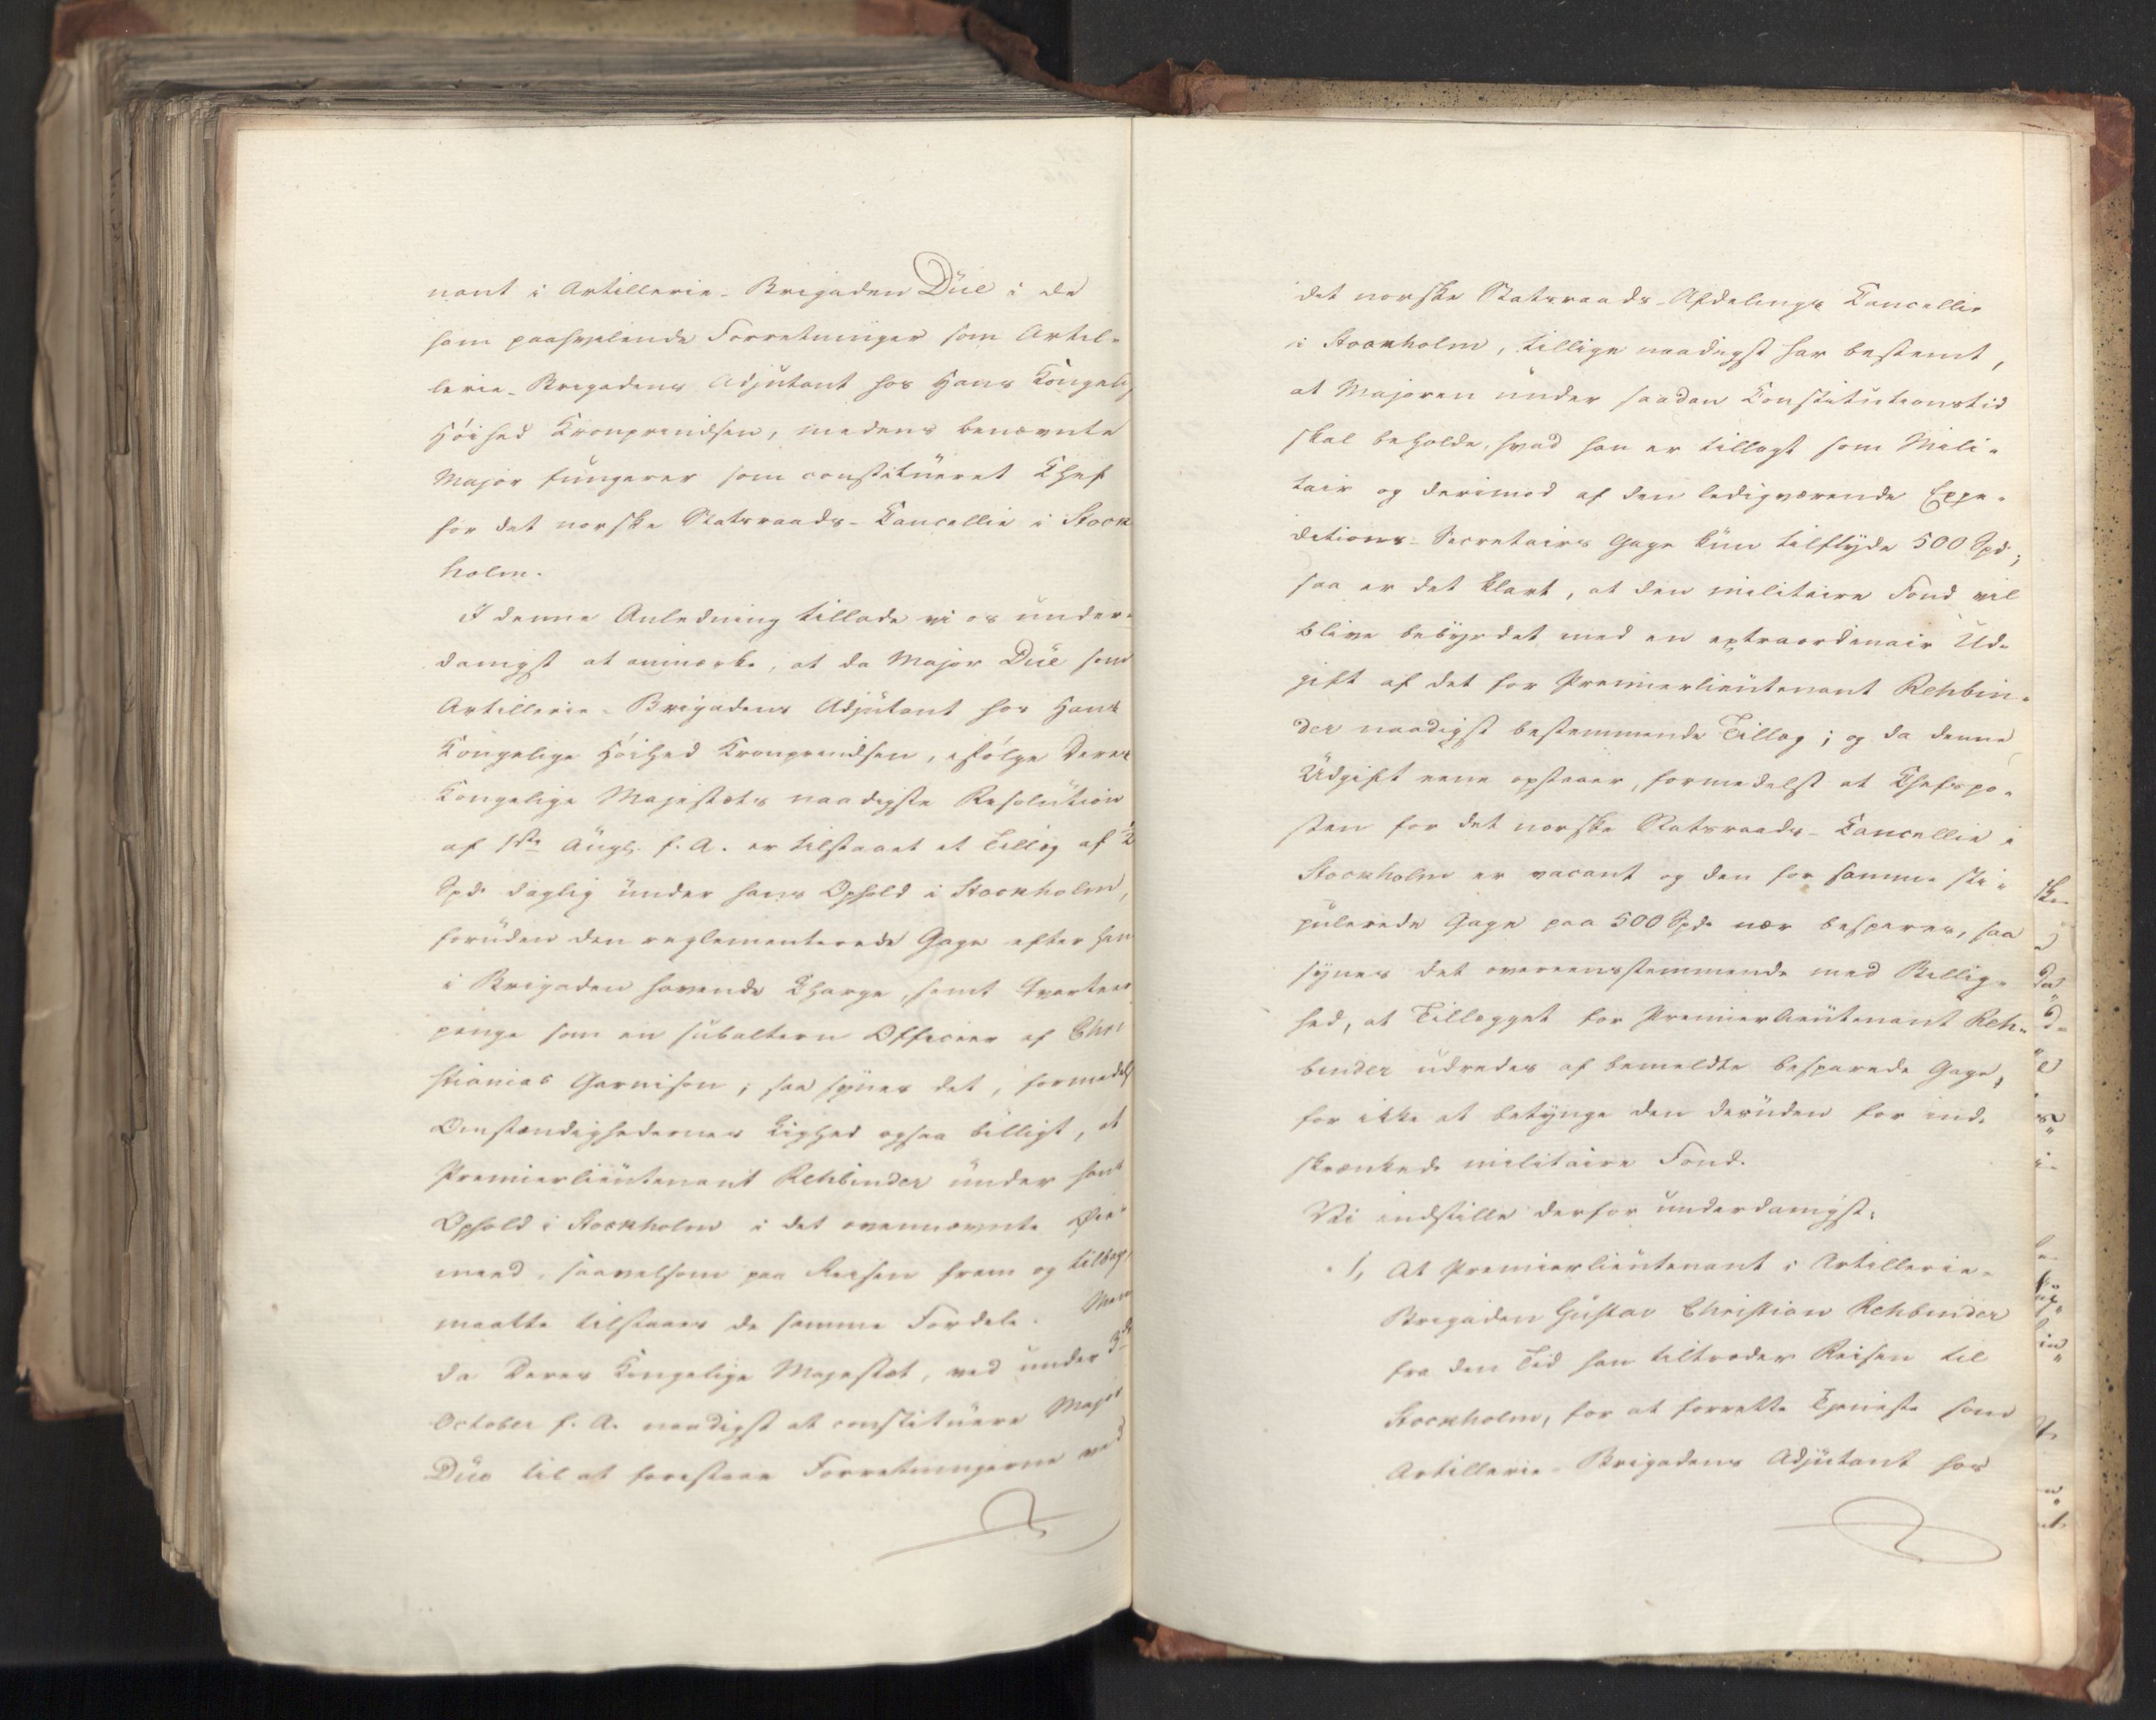 nant i Artillerie-Brigaden Düe i de
ham paahvilende Forretninger som Artil-
lerie-Brigadens Adjutant hos Hans Kongelig
Höihed Kronprindsen, medens benævnte
Major fungerer som constitueret Chef
for det norske Statsraads-Cancellie i Stock
holm.
I denne Anledning tillade vi os under-
danigst at anmærke, at da Major Düe som
Artillerie-Brigadens Adjutant hos Hans
Kongelige Höihed Kronprindsen, ifölge Deres
Kongelige Majestæts naadigste Resolution
af 1ste Augs. f. A. er tilstaaet et Tillæg af ½
Spd. daglig under hans Ophold i Stockholm,
foruden den reglementerede Gage efter hans
i Brigaden havende Charge, samt Qvarteer
penge som en subaltern Officeer af Chri
stianias Garnison; saa synes det, formedelst
Omstændighedernes Lighed ogsaa billigt, at
Premierlieutenant Rehbinder under hans
Ophold i Stockholm i det ovennævnte Öie-
meed, saavelsom paa Reisen frem og tilbage,
maatte tilstaaes de samme Fordele. Men
da Deres Kongelige Majestæt, ved under 3de
October f. A. naadigst at constituere Major
Düe til at forestaae Forretningerne ved
det norske Statsraads-Afdelings Cancellie
i Stockholm, tillige naadigst har bestemt,
at Majoren under saadan Constitutionstid
skal beholde, hvad han er tillagt som Mili-
tair og derimod af den ledigværende Expe-
ditions-Secretairs Gage kun tilflyde 500 Spd;
saa er det klart, at den militaire Fond vil
blive bebyrdet med en extraordinair Ud-
gift af det for Premierlieutenant Rehbin-
der naadigst bestemmende Tillæg; og da denne
Udgift ene opstaaer, formedelst at Chefspo-
sten for det norske Statsraads-Cancellie i
Stockholm er vacant og den for samme sti-
pulerede Gage paa 500 Spd. nær bespares, saa
synes det overeensstemmende med Billig-
hed, at Tillægget for Premierlieutenant Reh-
binder udredes af bemeldte besparede Gage,
for ikke at betynge den desuden for ind-
skrænkede militaire Fond.
Vi indstille derfor underdanigst:
1, At Premierlieutenant i Artillerie-
Brigaden Gustav Christian Rehbinder
fra den Tid han tiltræder Reisen til
Stockholm, for at forrette Tjeneste som
Artillerie-Brigadens Adjutant hos